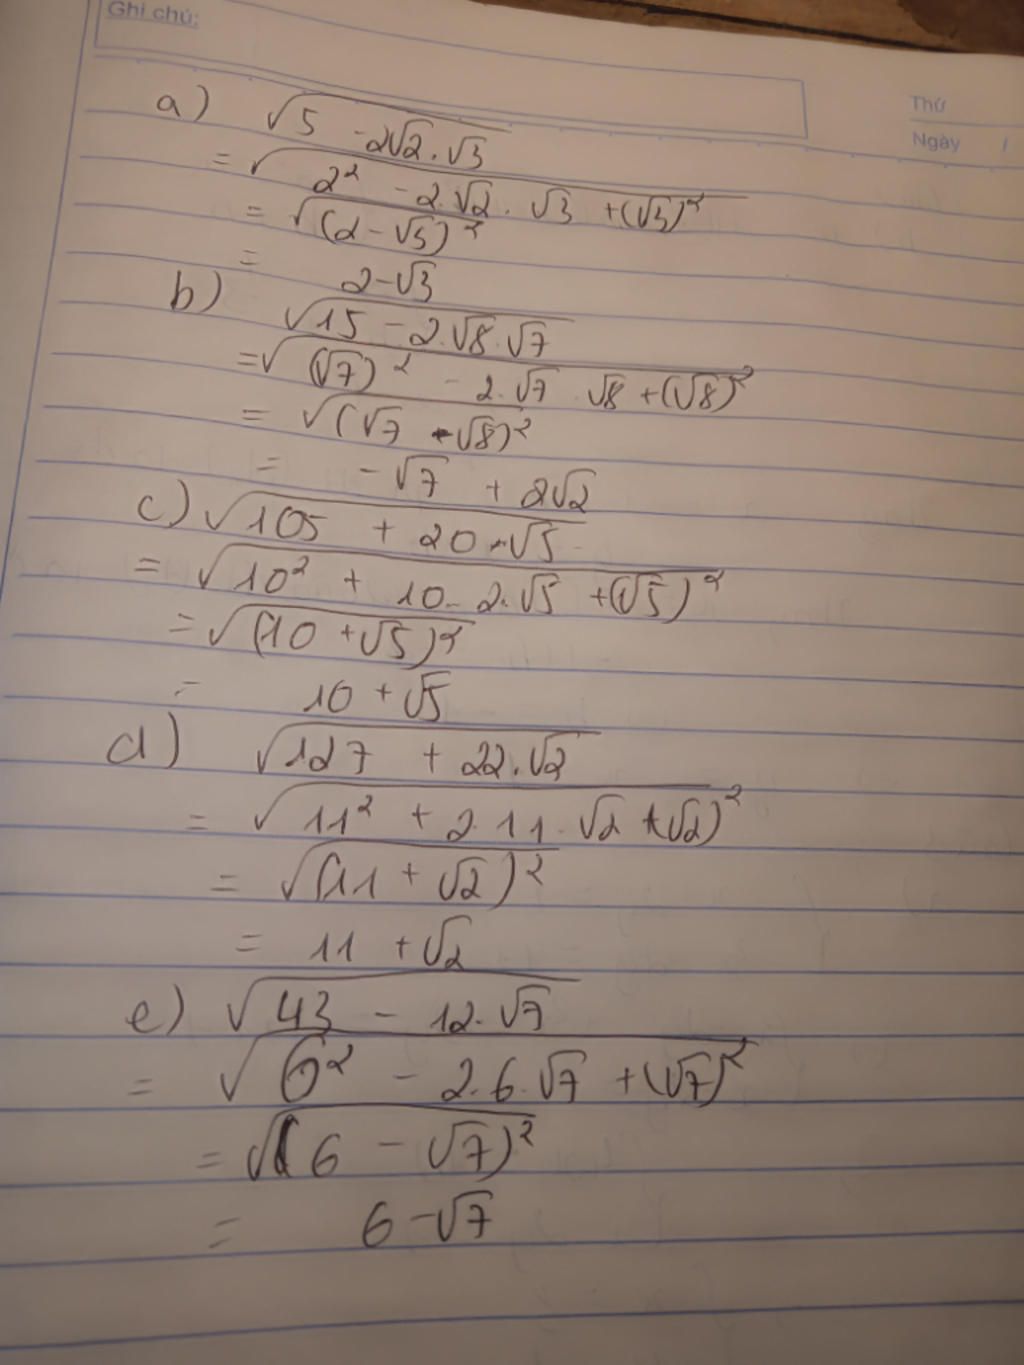 Ghi chú:
Thứ
Ngày /
a) √(5 - 2√2 . √3)
= √(2² - 2.√2 . √3 + (√3)²)
= √((2 - √3)²)
= 2 - √3
b) √(15 - 2.√8.√7)
= √((√7)² - 2.√7 . √8 + (√8)²)
= √((√7 - √8)²)
= -√7 + 2√2
c) √(105 + 20.√5)
= √(10² + 10.2.√5 + (√5)²)
= √((10 + √5)²)
= 10 + √5
d) √(127 + 22.√2)
= √(11² + 2.11.√2 + (√2)²)
= √((11 + √2)²)
= 11 + √2
e) √(43 - 12.√7)
= √(6² - 2.6.√7 + (√7)²)
= √((6 - √7)²)
= 6 - √7